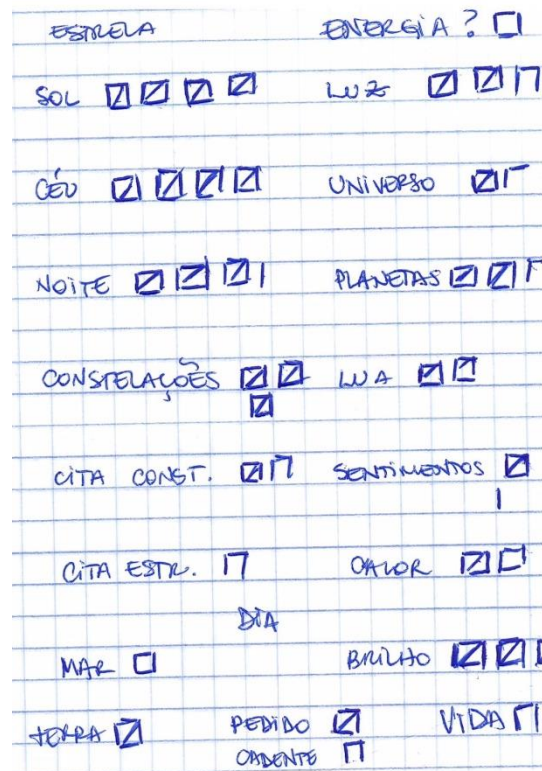 ESTRELA ENERGIA?
SOL LUZ
CÉU UNIVERSO
NOITE PLANETAS
CONSTELAÇÕES LUA
CITA CONST. SENTIMENTOS
CITA ESTR. CALOR
DIA
MAR BRILHO
TERRA PEDIDO VIDA
CADENTE